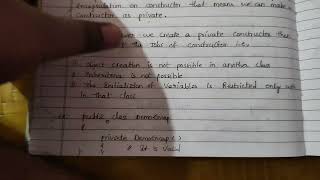 Encapsulation on constructor that means we can make a
constructor as private.
we create a private constructor then
of constructor i.e.
object creation is not possible in another class
Inheritance is not possible
The Initialization of Variables is Restricted only
in that class
public class
{
private
{ // It is Valid
}